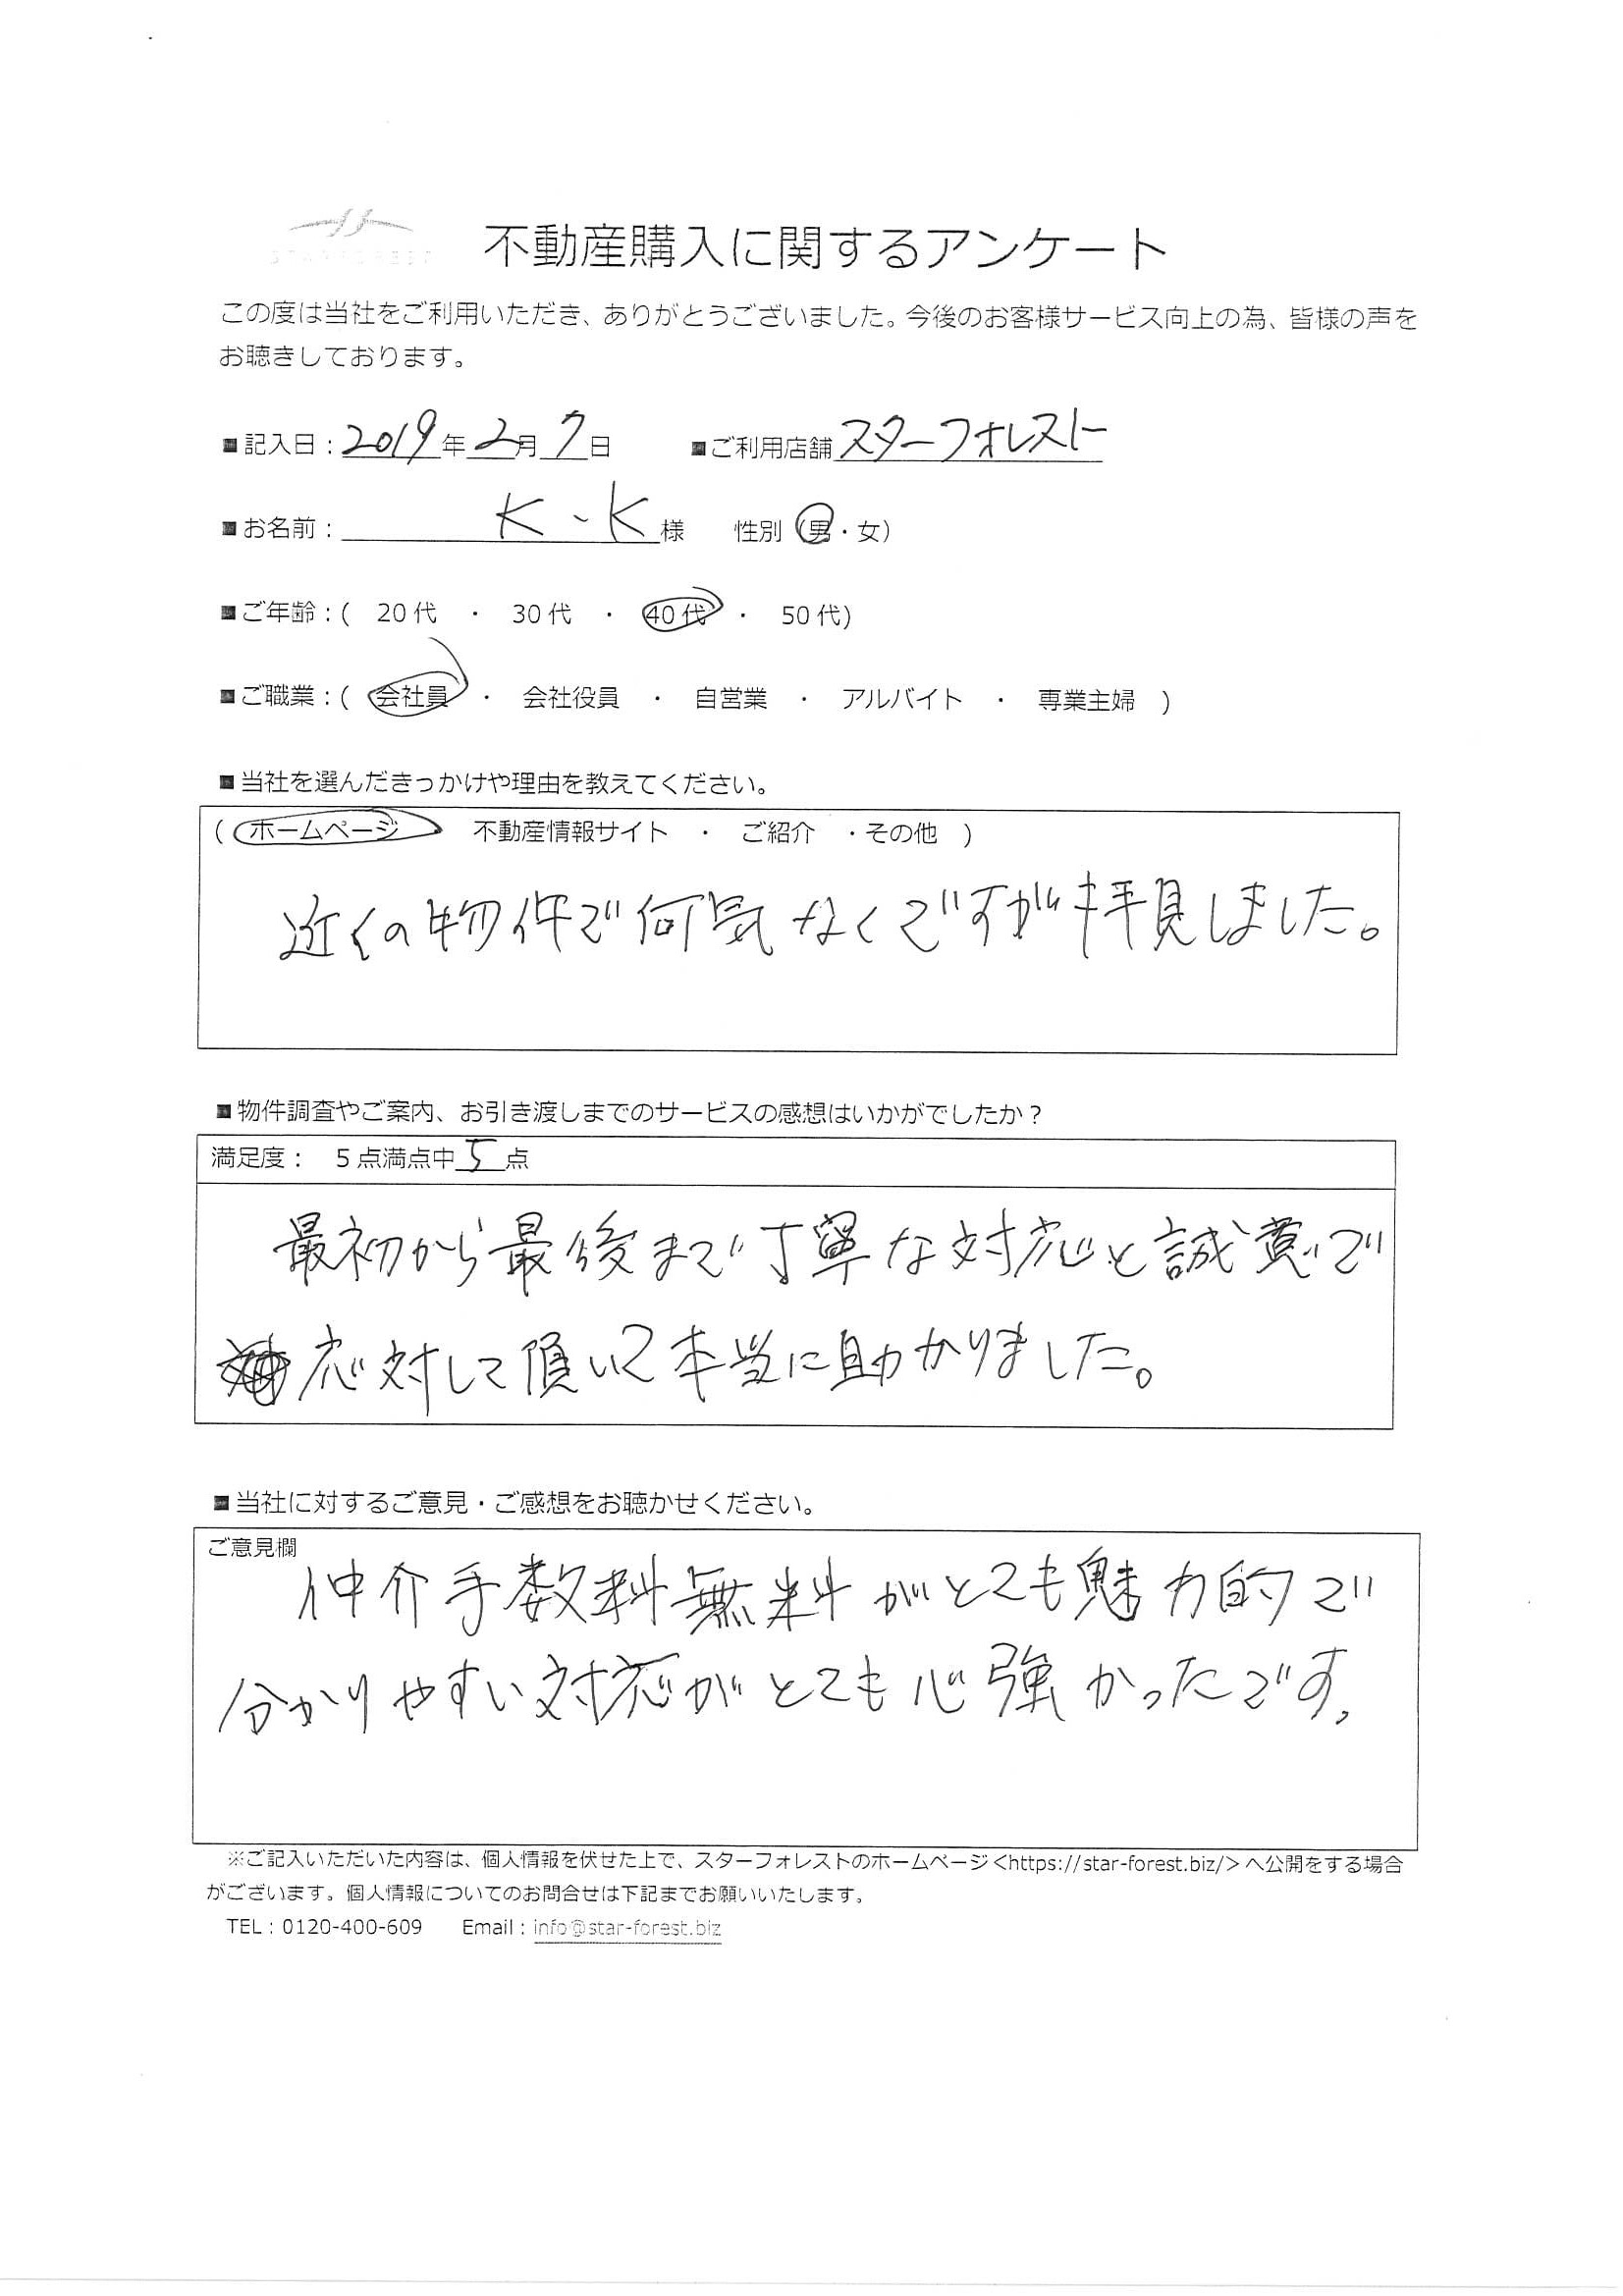 STAR FOREST
不動産購入に関するアンケート
この度は当社をご利用いただき、ありがとうございました。今後のお客様サービス向上の為、皆様の声を
お聴きしております。
■記入日：2019年2月7日 ■ご利用店舗スターフォレスト
■お名前：K・K様 性別（男・女）
■ご年齢：( 20代 ・ 30代 ・ 40代 ・ 50代)
■ご職業：( 会社員 ・ 会社役員 ・ 自営業 ・ アルバイト ・ 専業主婦 )
■当社を選んだきっかけや理由を教えてください。
( ホームページ 不動産情報サイト ・ ご紹介 ・その他 )
近くの物件で何気なくですが拝見しました。
■物件調査やご案内、お引き渡しまでのサービスの感想はいかがでしたか？
満足度： 5点満点中5点
最初から最後まで丁寧な対応と誠意で
応対して頂いて本当に助かりました。
■当社に対するご意見・ご感想をお聴かせください。
ご意見欄
仲介手数料無料がとても魅力的で
分かりやすい対応がとても心強かったです。
※ご記入いただいた内容は、個人情報を伏せた上で、スターフォレストのホームページ<https://star-forest.biz/>へ公開をする場合
がございます。個人情報についてのお問合せは下記までお願いいたします。
TEL：0120-400-609 Email：info@star-forest.biz